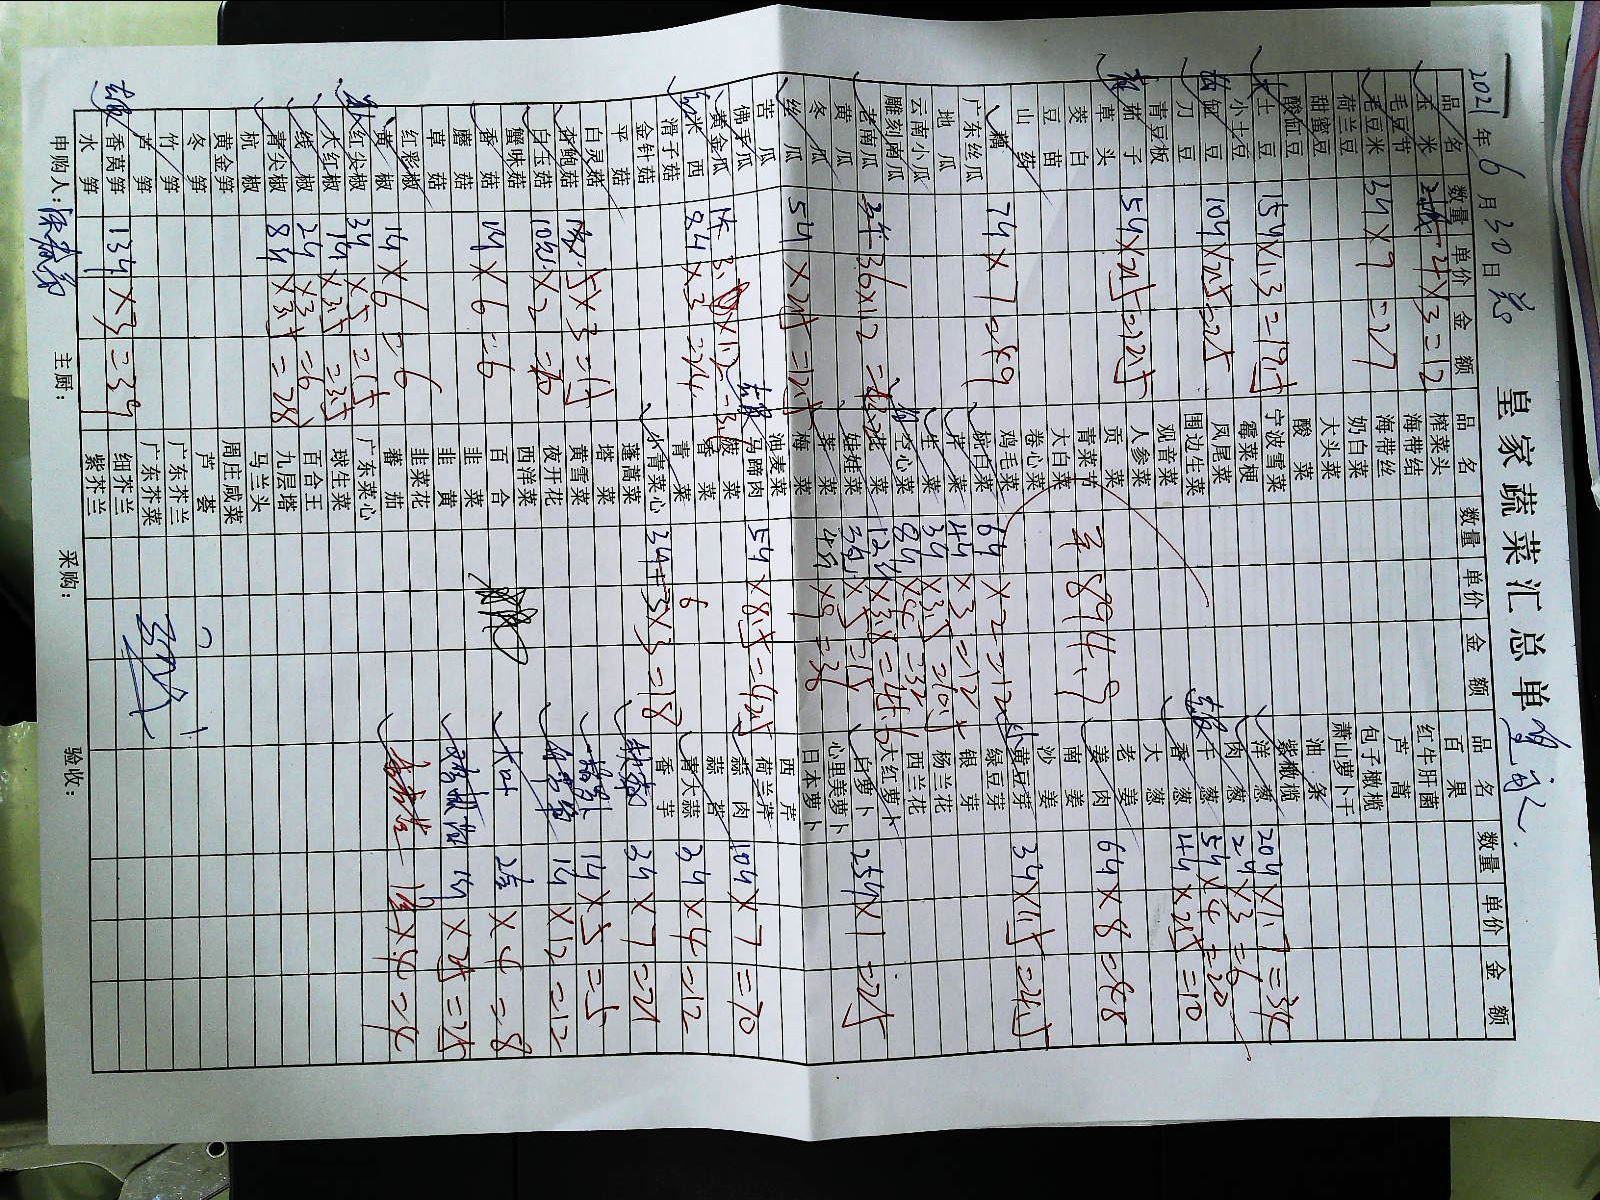 皇家蔬菜汇总单
2021年6月30日
品名 数量 单价 金额 品名 数量 单价 金额 品名 数量 单价 金额
玉米 4×3=12 榨菜头 百果
毛豆节 海带结 红牛肝菌
毛豆米 3斤×9=27 海带丝 芦蒿
荷兰豆 奶白菜 包子橄榄
甜蜜豆 大头菜 萧山萝卜干
酸缸豆 酸菜 油条
土豆 15斤×1.3=19.5 宁波雪菜 紫橄榄
小土豆 霉菜梗 洋葱 20斤×1.7=34
缸豆 10斤×2.5=25 凤尾菜 肉葱 2斤×3=6
刀豆 围边生菜 干葱 5斤×4=20
青豆板 观音菜 香葱 4斤×2.5=10
茄子 5斤×2.5=12.5 人参菜 大葱
草头 贡菜 老姜
葵白 青菜节 894.9 姜肉 6斤×8=48
豆苗 大白菜 南姜
山药 卷心菜 沙姜
藕 7斤×7=49 鸡毛菜 黄豆芽 3斤×1.5=4.5
广东丝瓜 杭白菜 6斤×2=12 绿豆芽
地瓜 芹菜 4斤×3=12 银芽
云南小瓜 生菜 3斤×3.5=10.5 杨兰花
雕刻南瓜 空心菜 8斤×4=32 西兰花
老南瓜 36×1.2 花菜 12斤×3.8=45.6 大红萝卜
黄瓜 娃娃菜 3斤×5=15 白萝卜 25斤×1=25
冬瓜 荠菜 4斤×9=36 心里美萝卜
丝瓜 5斤×2.5=12.5 海菜 日本萝卜
苦瓜 池麦菜 西芹
佛手瓜 马蹄肉 5斤×8.5=42.5 荷兰芹
黄金瓜 菠菜 蒜肉 10斤×7=70
西米 8斤×3=24 香菜 蒜苔
滑子菇 青菜 6 青大蒜 3斤×4=12
金针菇 小青菜心 3斤+3×3=18 香芋
平菇 蓬蒿菜 3斤×7=21
白灵菇 塔菜
杏鲍菇 5×3=15 黄雪菜 1斤×5=5
白玉菇 ×2 夜开花 1斤×12=12
蟹味菇 西洋菜
香菇 1斤×6=6 百合 大叶 ×4=8
蘑菇 韭菜
草菇 韭黄 1斤×25=25
红彩椒 韭菜花
黄椒 1斤×6=6 蕃茄 ×4=4
红尖椒 3斤×5=15 广东菜心
大红椒 1斤×3.5=3.5 球生菜
线椒 2斤×3=6 百合王
青尖椒 8斤×3.5=28 九层塔
杭椒 马兰头
黄金笋 周庄咸菜
冬笋 芦荟
竹笋 广东芥兰
芦笋 广东芥菜
香莴笋 13斤×3=39 细芥兰
水笋 紫芥兰
申购人: 主厨: 采购: 验收: